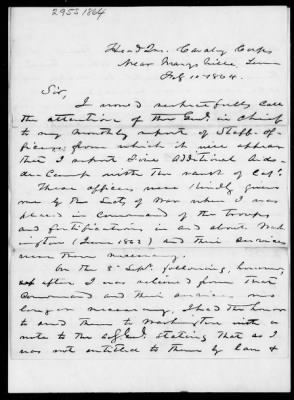 295S 1864
Head Qrs. Cavalry Corps
Near Marysville Tenn
Feb 10 1864.
Sir,
I would respectfully call
the attention of the Genl. in Chief
to my monthly report of Staff-of-
ficers; from which it will appear
that I report Additional Aids-
de-Camp with the rank of Capt.
These officers were kindly given
me by the Secty of War when I was
placed in command of the troops
and fortifications in and about Wash-
ington (June 1863) and their services
were then necessary.
On the 8th Sept. following, however,
after I was relieved from that
Command and their services no
longer necessary, I had the honor
to send them to Washington with a
note to the stating that as I
was not entitled to them by law &